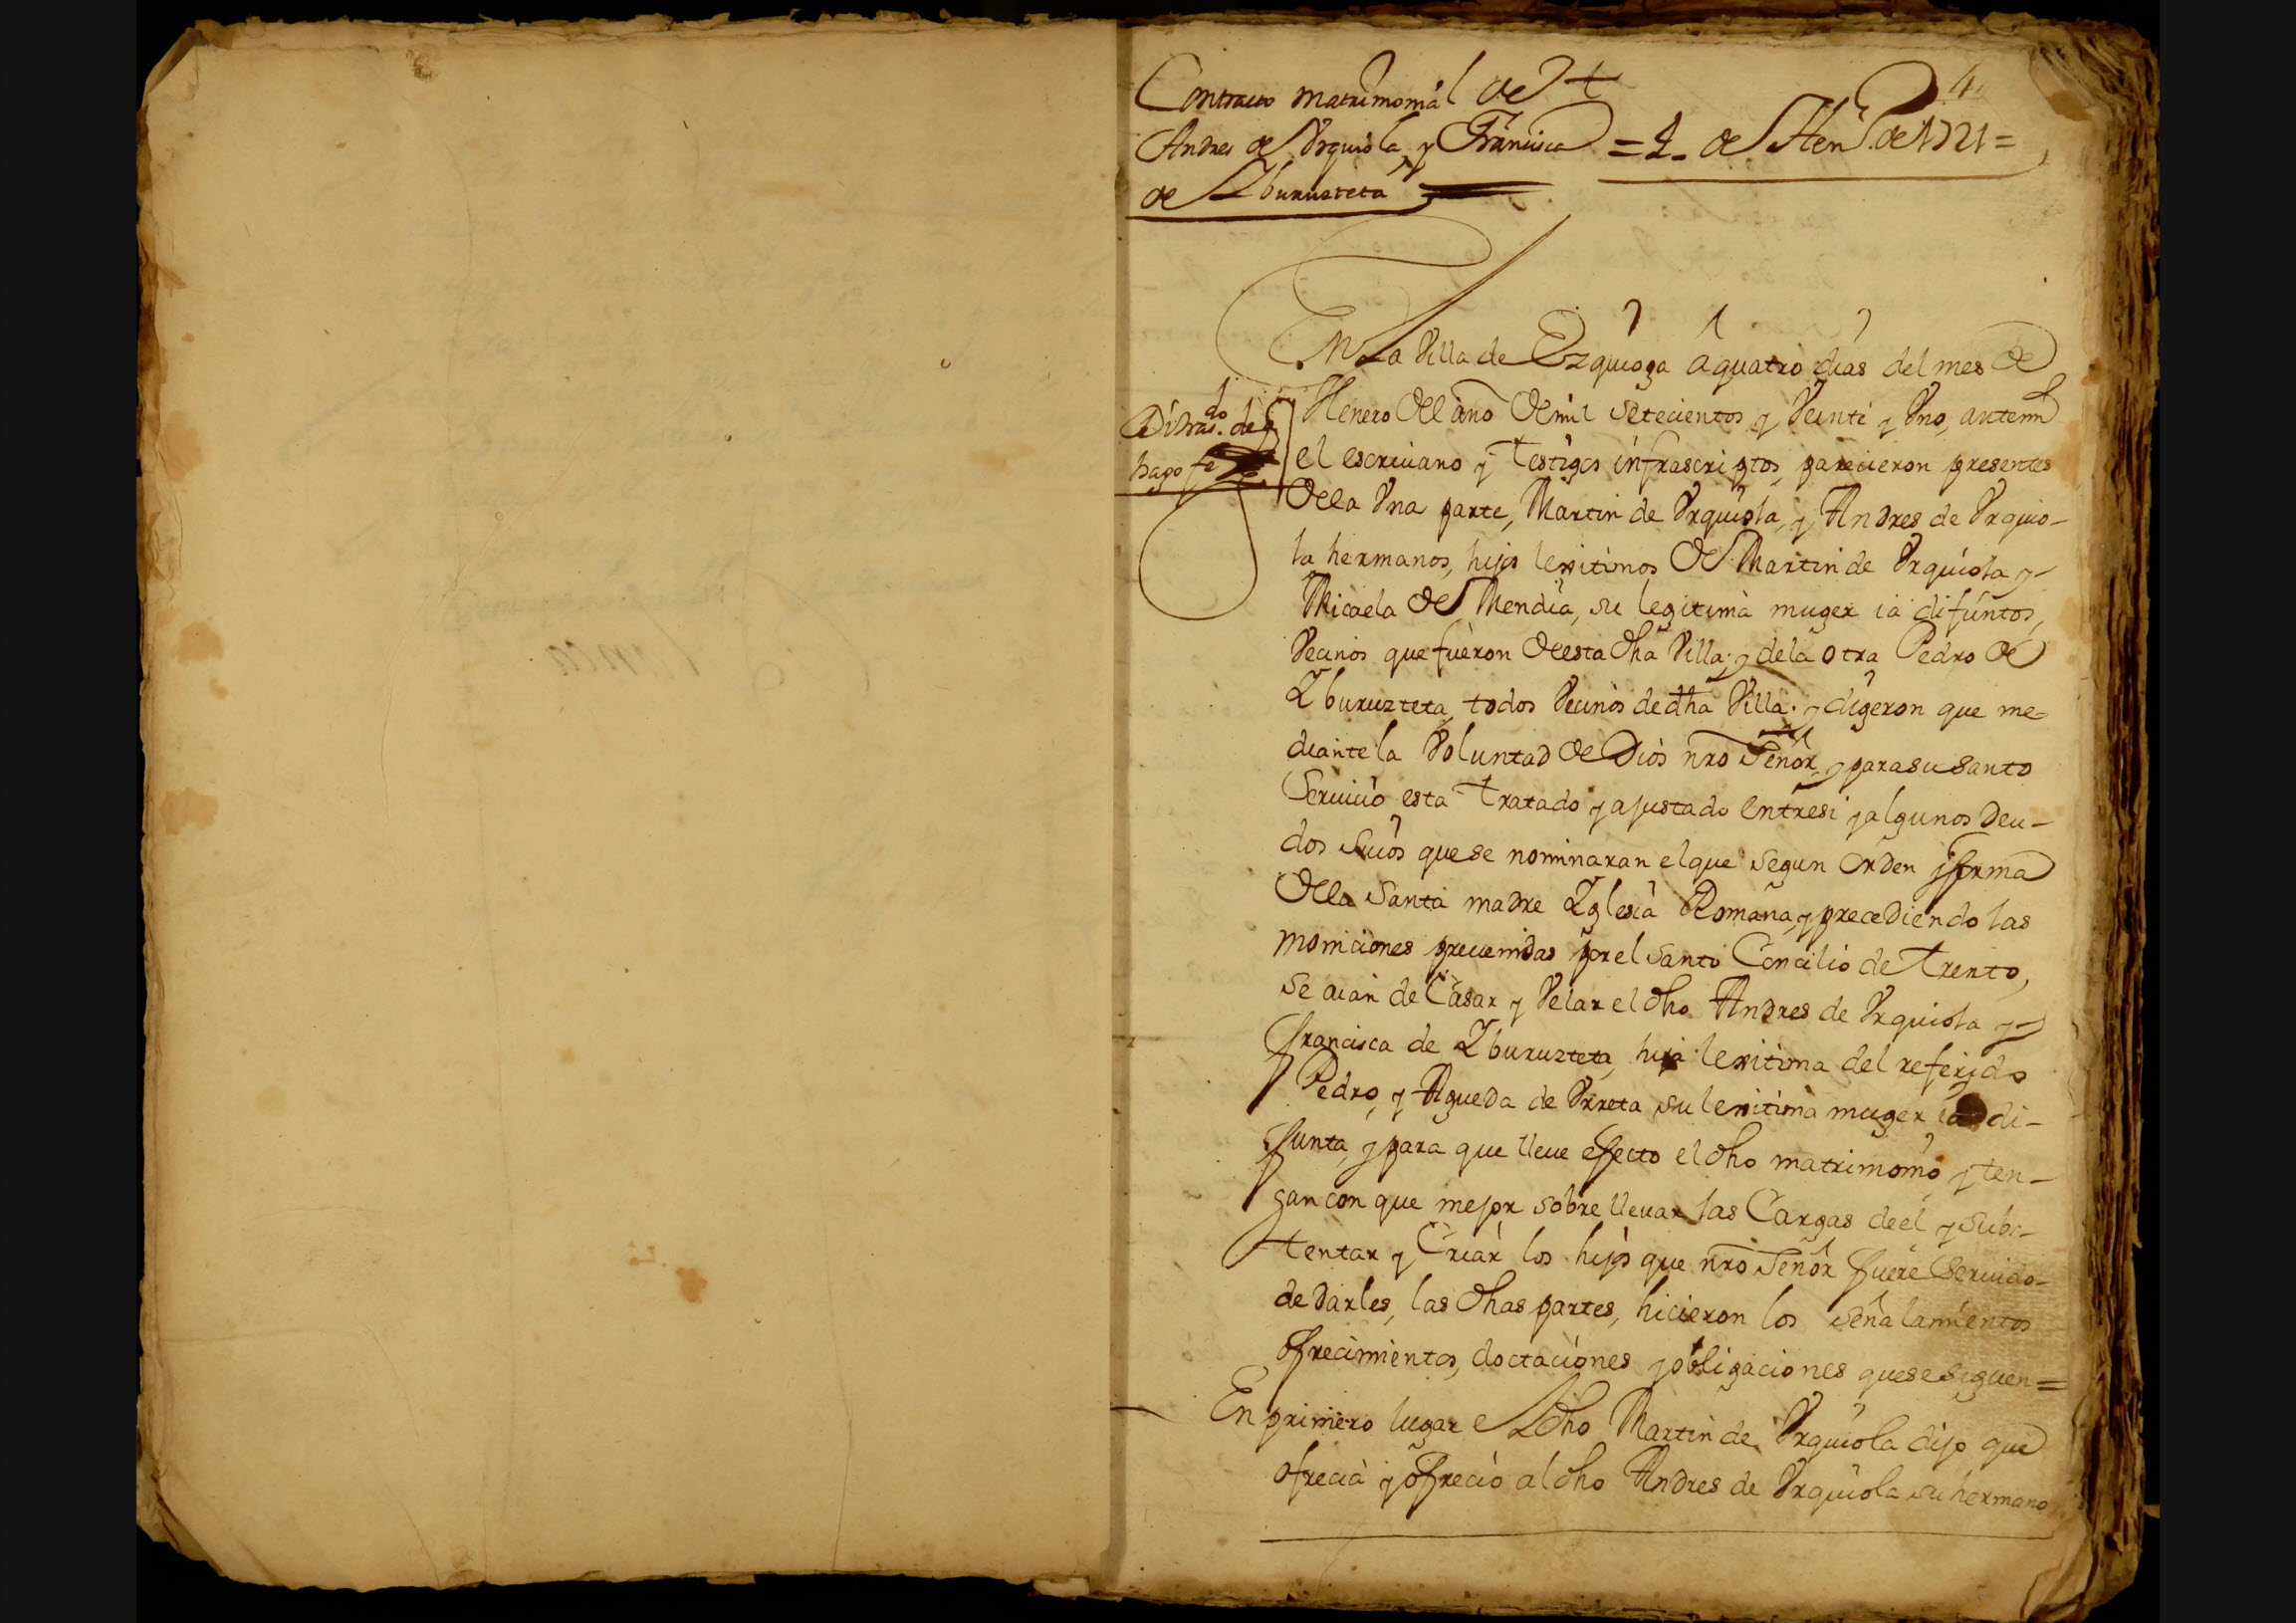 Contracto matrimonial de +
Andres de Vrquiola y Francisca
de Yburuzteta
= 4 de Hen.º de 1721 =
4
En La Villa de Ezquioga a quatro dias del mes de
Henero del año de mil setecientos y Veinti y Vno, antemi
el escriuano y testigos infrascriptos, parecieron presentes
de la Vna parte, Martin de Vrquiola, y Andres de Vrquio-
la hermanos, hijos lexitimos de Martin de Vrquiola y
Micaela de Mendia, su legitima muger ia difuntos,
Vecinos que fueron de esta dha Villa; y dela otra Pedro de
Yburuzteta, todos Vecinos de dha Villa. y digeron que me-
diante la Voluntad de Dios nro Señor, y para su santo
Seruicio esta tratado y ajustado entre si y algunos deu-
dos suios que se nominaran el que segun orden y forma
de la Santa madre Yglesia Romana, y precediendo las
moniciones preuenidas por el santo Concilio de Trento,
se aian de Casar y Velar el dho Andres de Vrquiola y
francisca de Yburuzteta, hija lexitima del referido
Pedro, y Agueda de Vrreta su lexitima muger ia di-
funta, y para que lleue efecto el dho matrimonio y ten-
gan con que mejor sobre lleuar las Cargas de el y subs-
tentar y Criar los hijos que nro Señor fuere Seruido
de darles, las dhas partes, hicieron los señalamientos
ofrecimientos, doctaciones y obligaciones que se siguen =
En primero lugar el dho Martin de Vrquiola dijo que
ofrecia y ofrecio al dho Andres de Vrquiola su hermano
hago fe